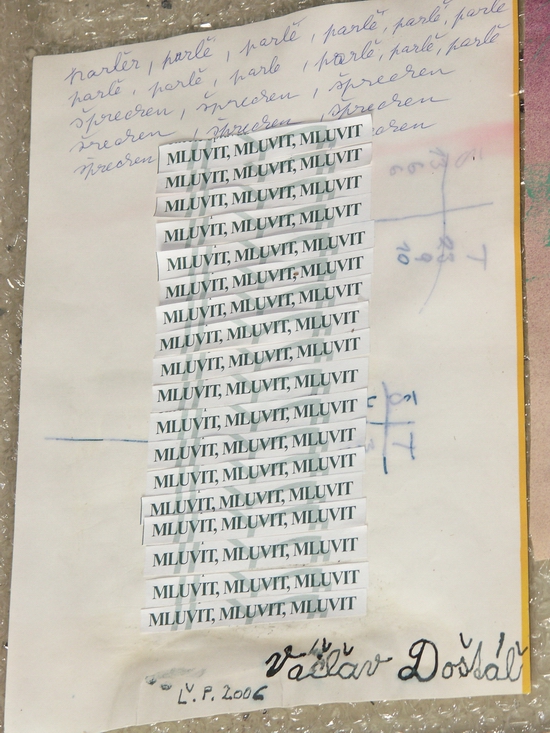 parlěr, parlě, parlě, parlě, parlě, parlě, parlě
parlě, parlě, parlě, parlě, parlě, parlě
šprecren, šprecren, šprecren
šprecren
MLUVIT, MLUVIT, MLUVIT
MLUVIT, MLUVIT, MLUVIT
MLUVIT, MLUVIT, MLUVIT
MLUVIT, MLUVIT, MLUVIT
MLUVIT, MLUVIT, MLUVIT
MLUVIT, MLUVIT, MLUVIT
MLUVIT, MLUVIT, MLUVIT
MLUVIT, MLUVIT, MLUVIT
MLUVIT, MLUVIT, MLUVIT
MLUVIT, MLUVIT, MLUVIT
MLUVIT, MLUVIT, MLUVIT
MLUVIT, MLUVIT, MLUVIT
MLUVIT, MLUVIT, MLUVIT
MLUVIT, MLUVIT, MLUVIT
MLUVIT, MLUVIT, MLUVIT
MLUVIT, MLUVIT, MLUVIT
MLUVIT, MLUVIT, MLUVIT
MLUVIT, MLUVIT, MLUVIT
Václav Doštál
L. P. 2006